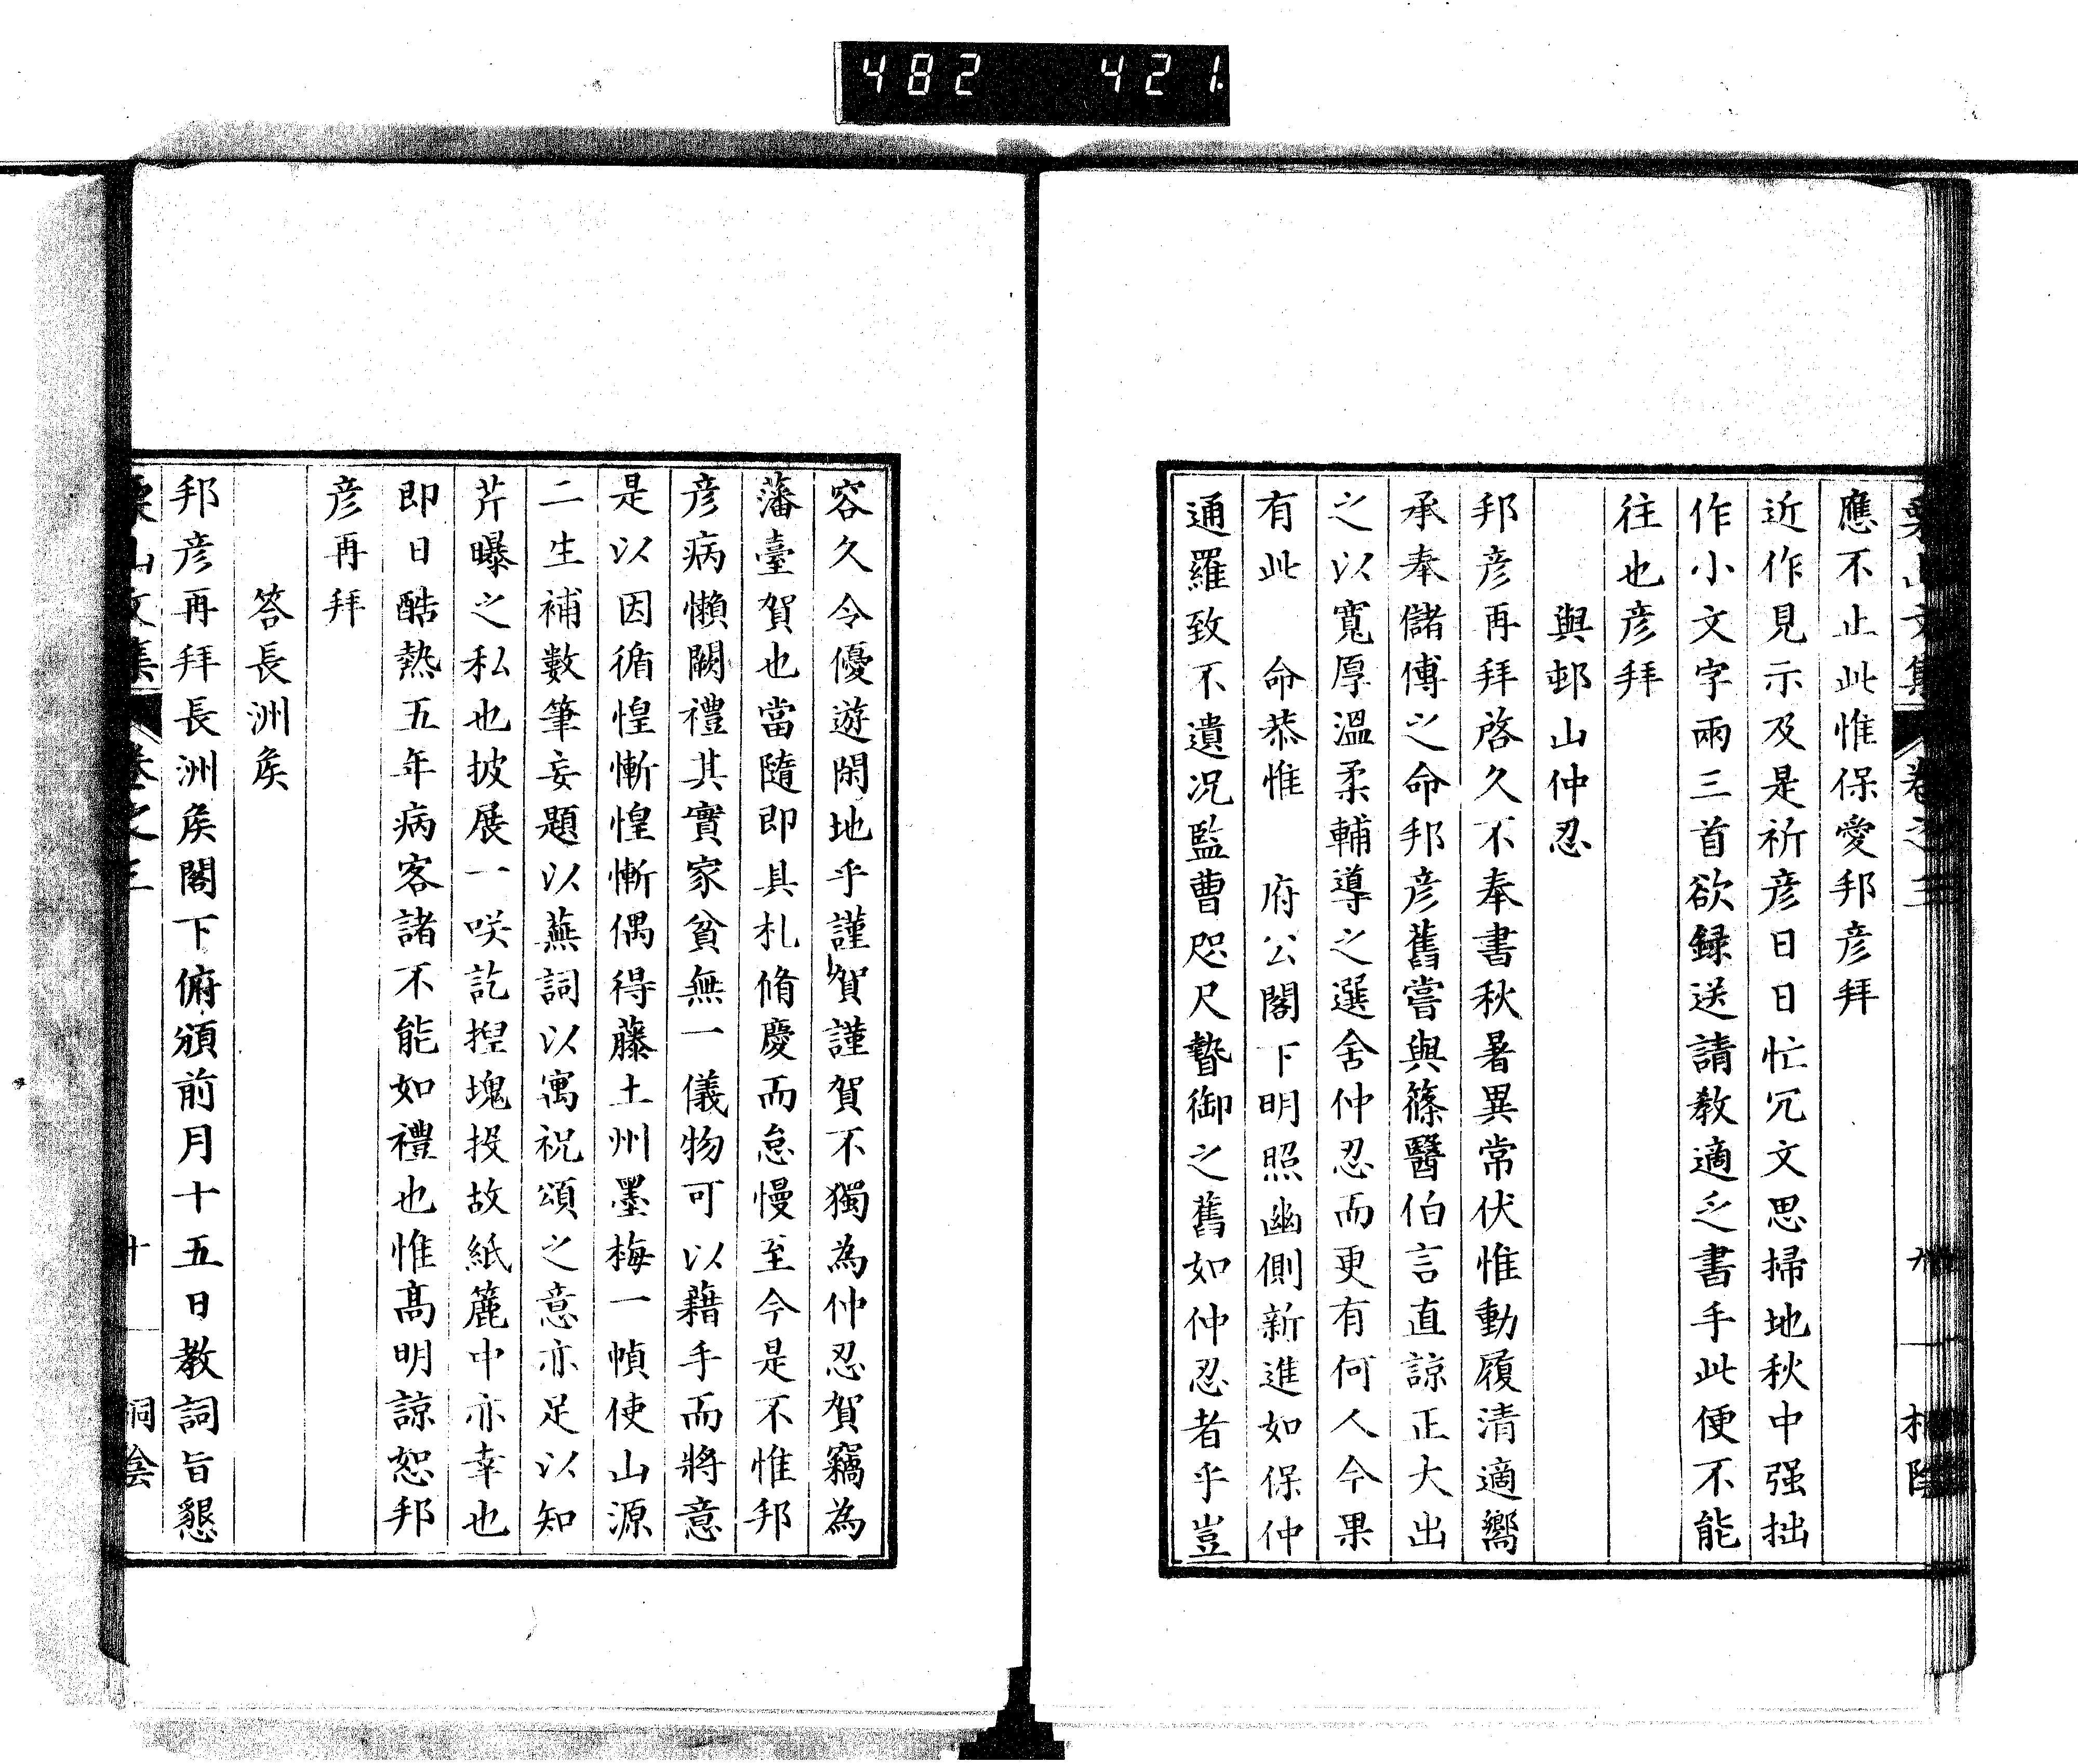 482 421
栗山文集 卷之三 九
應不止此惟保愛邦彦拜
近作見示及是祈彦日日忙冗文思掃地秋中强拙
作小文字兩三首欲録送請教適乏書手此便不能
往也彦拜
與邨山仲忍
邦彦再拜啓久不奉書秋暑異常伏惟動履清適嚮
承奉儲傅之命邦彦舊嘗與篠醫伯言直諒正大出
之以寬厚溫柔輔導之選舍仲忍而更有何人今果
有此 命恭惟 府公閣下明照幽側新進如保仲
通羅致不遺况監曹咫尺暬御之舊如仲忍者乎豈
容久令優遊閑地乎謹賀謹賀不獨為仲忍賀竊為
藩臺賀也當隨即具札脩慶而怠慢至今是不惟邦
彦病懶闕禮其實家貧無一儀物可以藉手而將意
是以因循惶慚惶慚偶得藤土州墨梅一幀使山源
二生補數筆妄題以蕪詞以寓祝頌之意亦足以知
芹曝之私也披展一咲訖揑塊投故紙簏中亦幸也
即日酷熱五年病客諸不能如禮也惟髙明諒恕邦
彦再拜
答長洲矦
邦彦再拜長洲矦閣下俯頒前月十五日教詞旨懇
栗山文集 卷之三 十